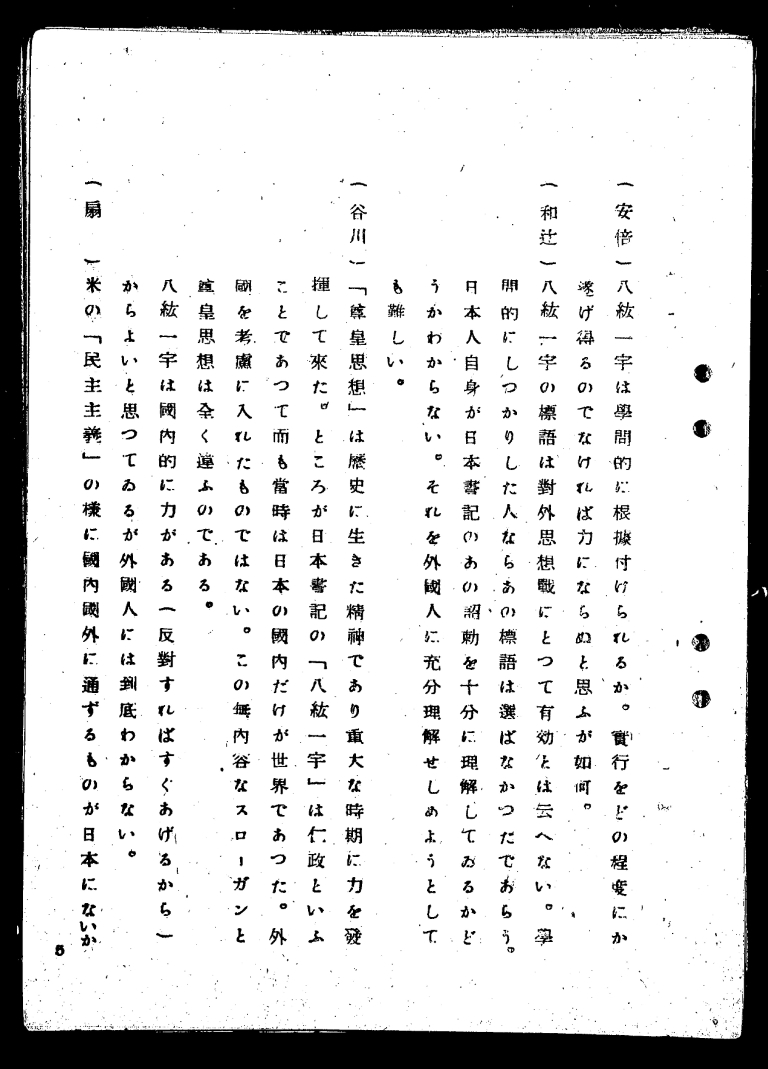 （安倍）八紘一宇は學問的に根據付けられるか。實行をどの程度にか
遂げ得るのでなければ力にならぬと思ふが如何。
（和辻）八紘一宇の標語は對外思想戰にとつて有効とは云へない。學
問的にしつかりした人ならあの標語は選ばなかつたであらう。
日本人自身が日本書記のあの詔勅を十分に理解してゐるかど
うかわからない。それを外國人に充分理解せしめようとして
も難しい。
（谷川）「尊皇思想」は歴史に生きた精神であり重大な時期に力を發
揮して來た。ところが日本書記の「八紘一宇」は仁政といふ
ことであつて而も當時は日本の國内だけが世界であつた。外
國を考慮に入れたものではない。この無内容なスローガンと
尊皇思想は全く違ふのである。
八紘一宇は國内的に力がある（反對すればすぐあげるから）
からよいと思つてゐるが外國人には到底わからない。
（扇　）米の「民主主義」の樣に國内國外に通ずるものが日本にないか
5